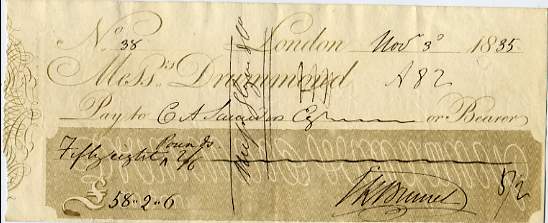 No 38 London Novr 3d 1835
Messrs Drummond A82
Pay to C A Saunders Esqr or Bearer
Fifty eight Pounds 2/6
£ 58-2-6
I K Brunel